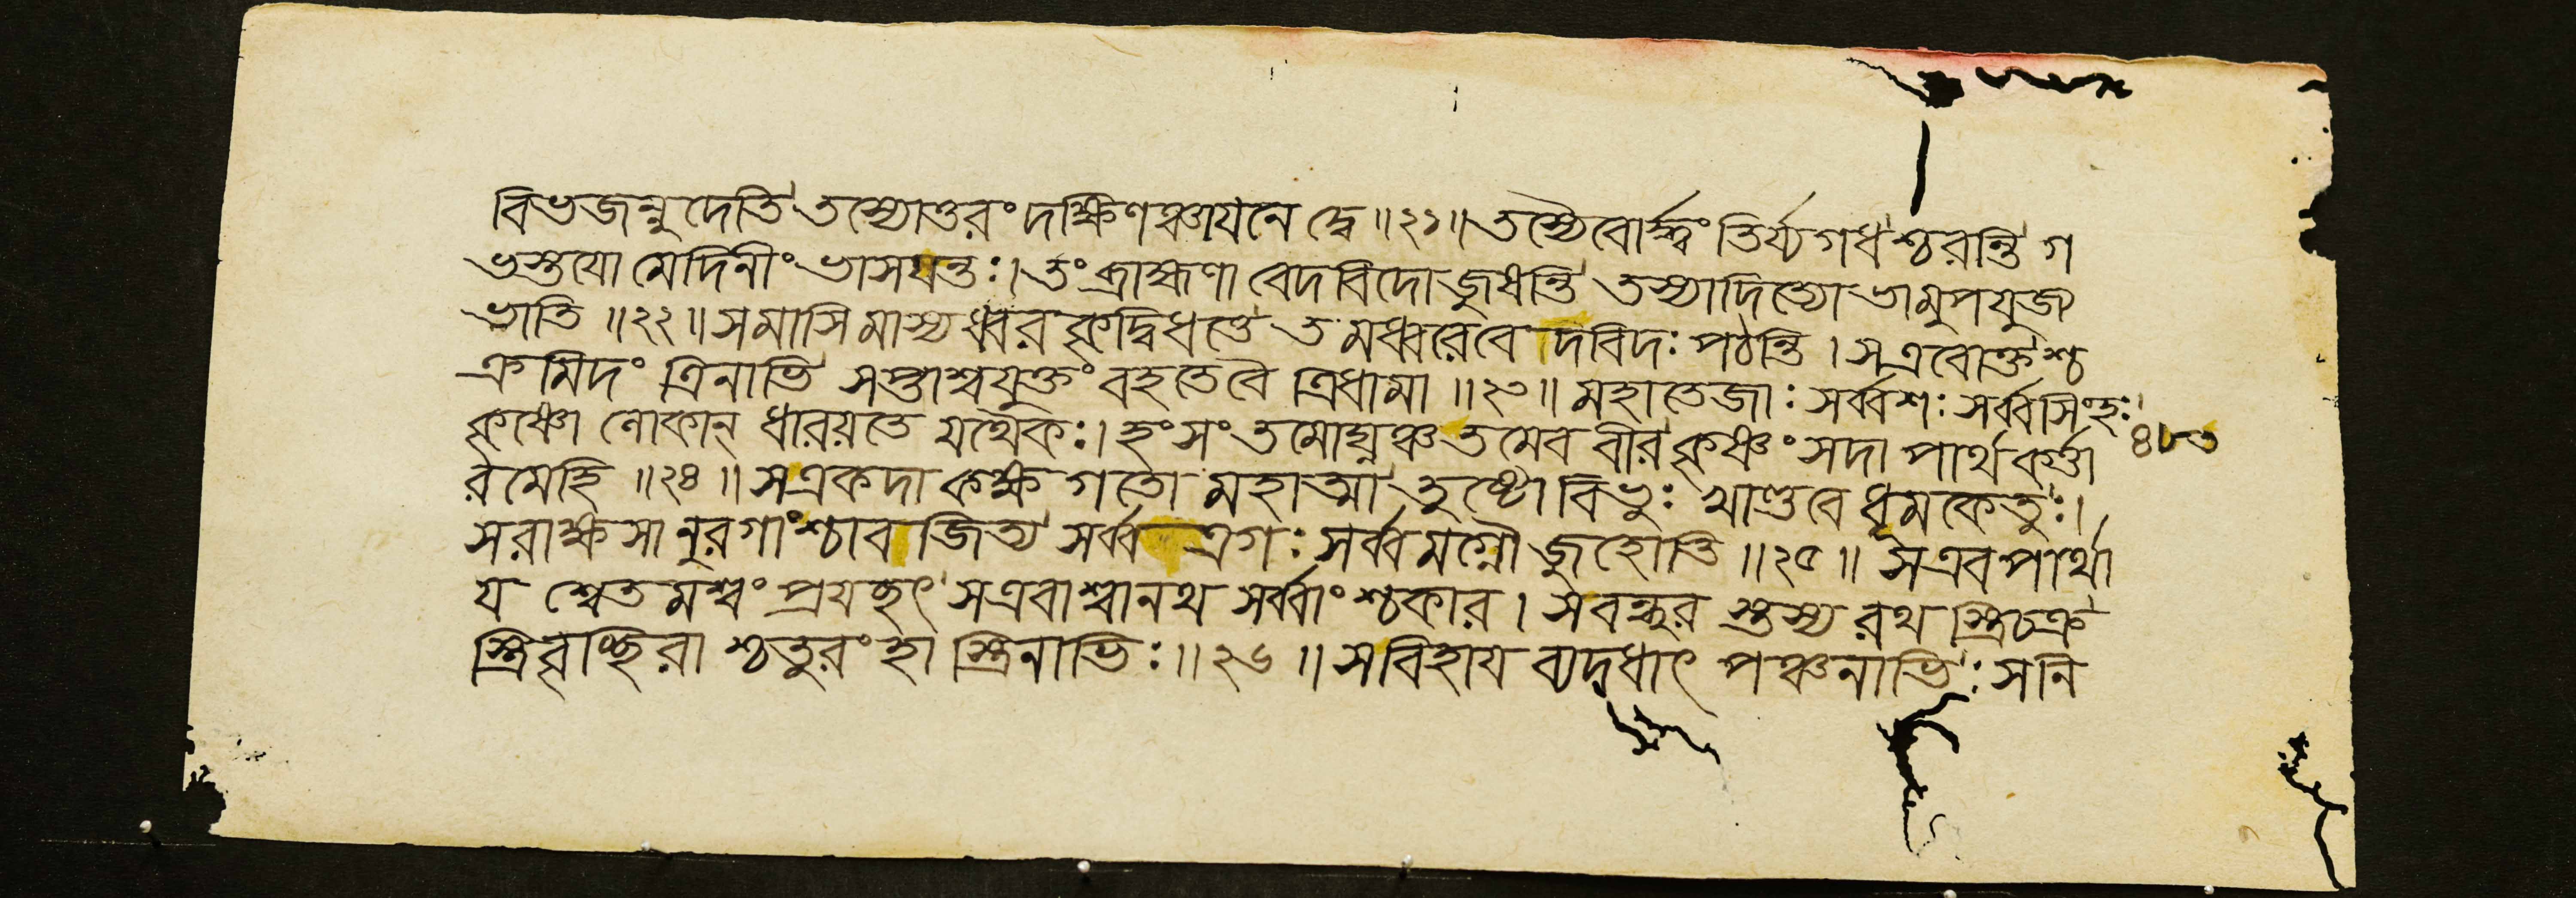 বিভজন্নুদেতি তস্যোত্তরং দক্ষিণঞ্চায়নে দ্বে ॥২১॥ তস্যৈবোর্দ্ধ্বং তির্য্যগধশ্চরন্তি গ
ভস্তযো মেদিনীং ভাসযন্তঃ। তং ব্রাহ্মণা বেদবিদো জুষন্তি তস্যাদিত্যো ভামুপযুজ্য
ভাতি ॥২২॥ সমাসি মাস্যধ্বরকৃদ্বিধত্তে তমধ্বরেবে দবিদঃ পঠন্তি। সএবোক্তশ্চ
ক্রমিদং ত্রিনাভি সপ্তাশ্বযুক্তং বহতেবৈ ত্রিধামা ॥২৩॥ মহাতেজাঃ সর্ব্বশঃ সর্ব্বসিংহঃ
কৃষ্ণো লোকান্ ধারয়তে যথৈকঃ। হংসং তমোঘ্নঞ্চ তমেব বীর কৃষ্ণং সদা পার্থ কর্ত্তা
রমেহি ॥২৪॥ সএকদা কক্ষগতো মহাত্মা তুষ্টো বিভুঃ খাণ্ডবে ধূমকেতুঃ।
সরাক্ষসানুরগাংশ্চাবজিত্য সর্ব্বএগঃ সর্ব্বমগ্নৌ জুহোতি ॥২৫॥ সএবপার্থা
য শ্বেতমশ্বং প্রযচ্ছৎ সএবাশ্বানথ সর্ব্বাংশ্চকার। সবন্ধুর স্তস্য রথ স্ত্রিচক্র
স্ত্রিবৃচ্ছিরা শ্চতুরংহা স্ত্রিনাভিঃ ॥২৬॥ সবিহায ব্যদধাৎ পঞ্চনাভিঃ সনি
৪৮৩